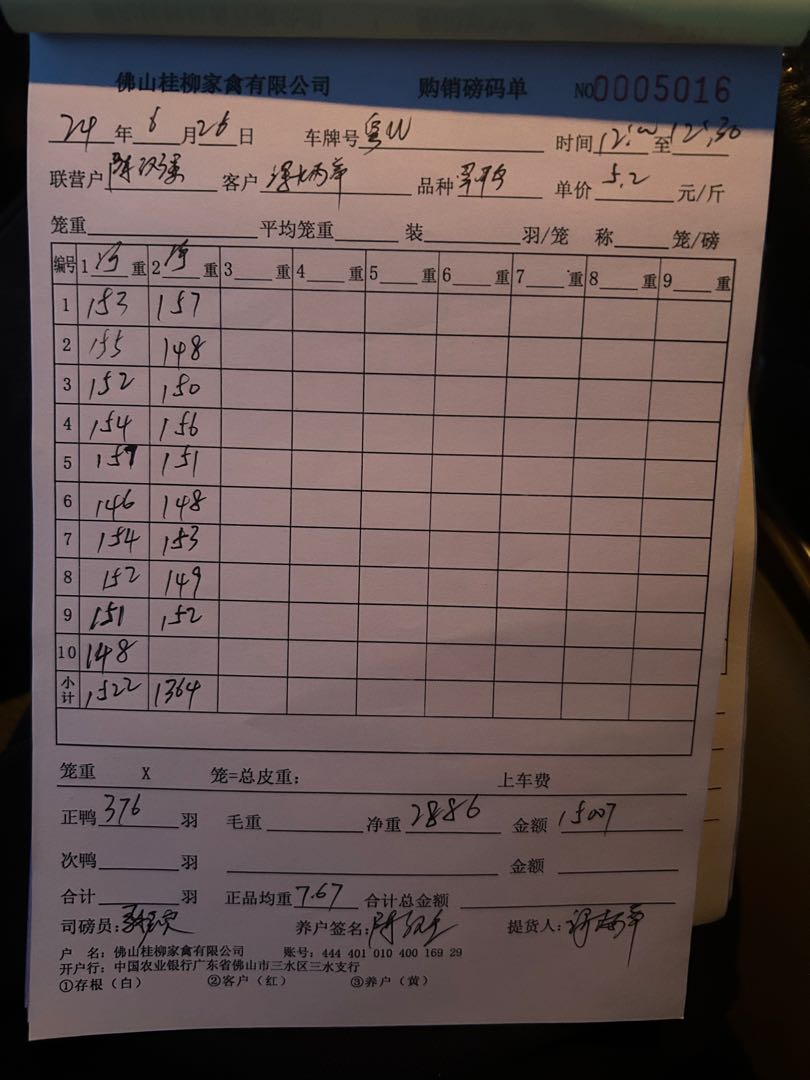 佛山桂柳家禽有限公司 购销磅码单 NO0005016
24年6月26日 车牌号 时间12:00至12:30
联营户 客户 品种 单价5.2元/斤
笼重 平均笼重 装 羽/笼 称 笼/磅
编号 1净重 2净重 3 重 4 重 5 重 6 重 7 重 8 重 9 重
1 153 157
2 155 148
3 152 150
4 154 156
5 157 151
6 146 148
7 154 153
8 152 149
9 151 152
10 148
小计 1522 1364
笼重 X 笼=总皮重: 上车费
正鸭376羽 毛重 净重2886 金额15007
次鸭 羽 金额
合计 羽 正品均重7.67 合计总金额
司磅员: 养户签名: 提货人:
户 名: 佛山桂柳家禽有限公司 账号: 444 401 010 400 169 29
开户行: 中国农业银行广东省佛山市三水区三水支行
①存根(白) ②客户(红) ③养户(黄)